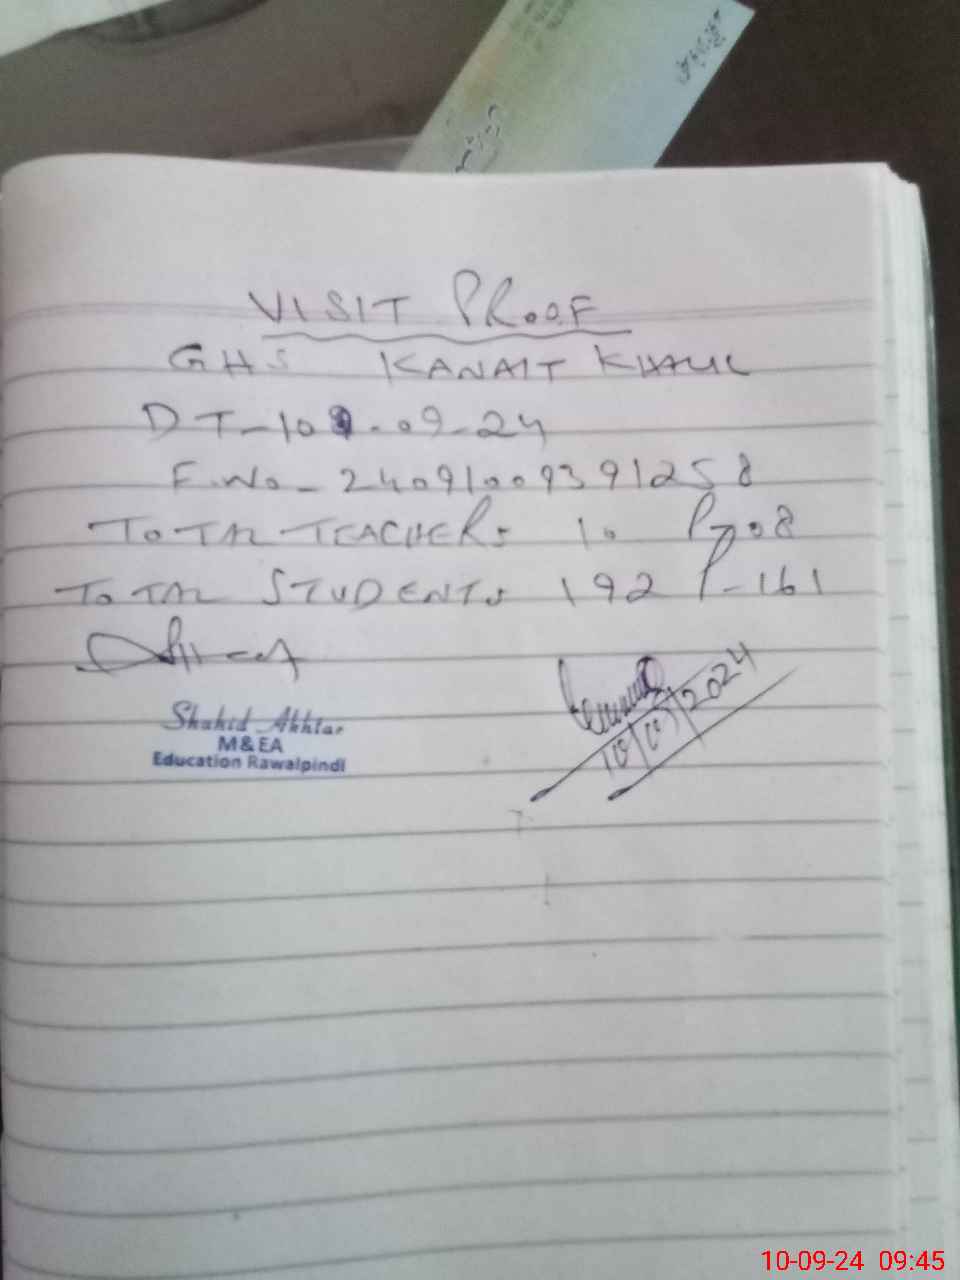 VISIT PROOF
GHS KANAIT KHALIL
DT-10-09-24
F.No- 24091009391258
TOTAL TEACHERS 10 P-08
TOTAL STUDENTS 192 P-161
Shahid Akhtar
M&EA
Education Rawalpindi
10/09/2024
10-09-24 09:45